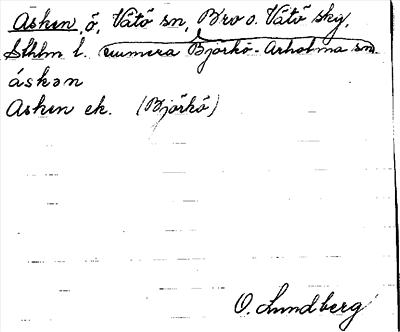 Asken, ö, Vätö sn, Bro o. Vätö skg,
Sthlm l. numera Björkö-Arholma sn.
áskən
Asken ek. (Björkö)
O. Lundberg